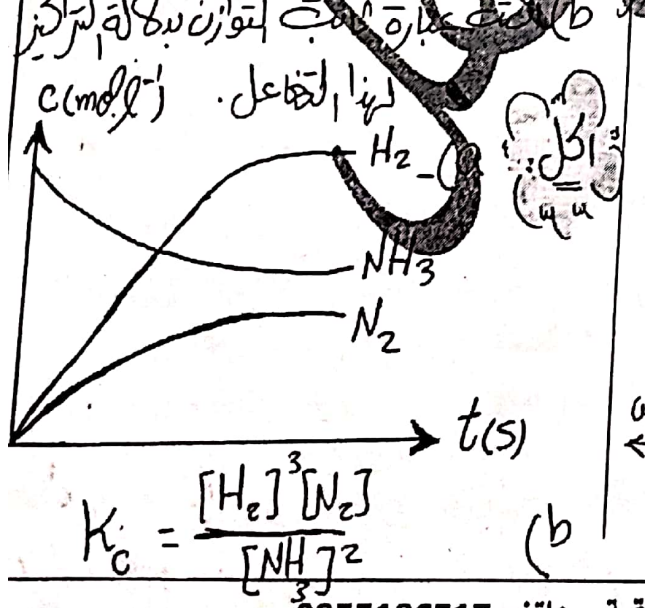 b) اكتب عبارة ثابت التوازن بدلالة التراكيز
لهذا التفاعل.
C(mol.l⁻¹)
الحل:
H₂
NH₃
N₂
t(s)
b) K_c = [H₂]³[N₂] / [NH₃]²